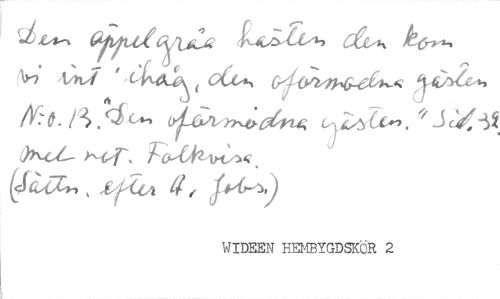 Den äppelgråa hästen den kom
vi int' ihåg, den oförmodna gästen
N:o. 13. "Den oförmodna gästen." Sid. 39.
mel. nit. Folkvisa.
(Sättn. efter A. Jobs.)
WIDEEN HEMBYGDSKÖR 2